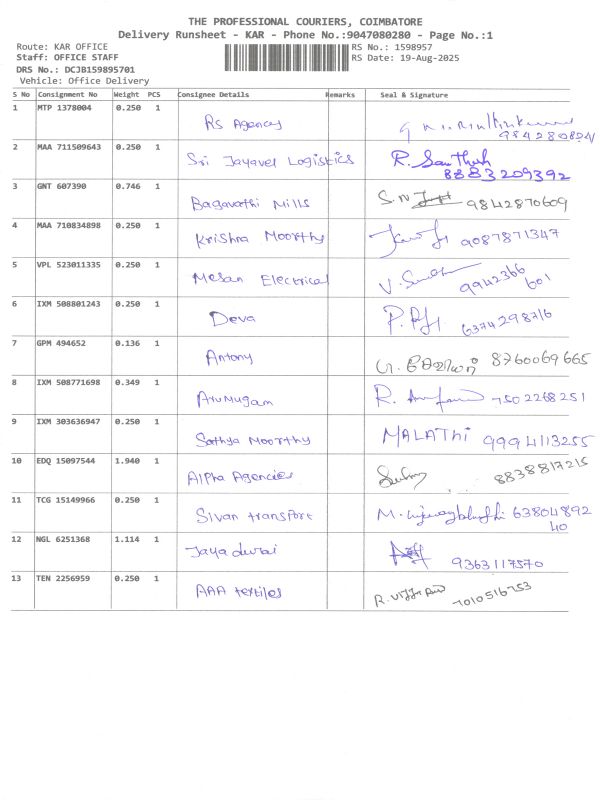 THE PROFESSIONAL COURIERS, COIMBATORE
Delivery Runsheet - KAR - Phone No.:9047080280 - Page No.:1
Route: KAR OFFICE RS No.: 1598957
Staff: OFFICE STAFF RS Date: 19-Aug-2025
DRS No.: DCJB159895701
Vehicle: Office Delivery
S No Consignment No Weight PCS Consignee Details Remarks Seal & Signature
1 MTP 1378004 0.250 1 RS Agency
9842808241
2 MAA 711509643 0.250 1 Sri Jayavel Logistics R. Santhosh
8883209392
3 GNT 607390 0.746 1 Bagavathi Mills S.N 9842870609
4 MAA 710834898 0.250 1 Krishna Moorthy 9087871347
5 VPL 523011335 0.250 1 Mesan Electrical V. 9942366
601
6 IXM 508801243 0.250 1 Deva P. 6374298716
7 GPM 494652 0.136 1 Antony 8760069665
8 IXM 508771698 0.349 1 Arumugam R. 7502268251
9 IXM 303636947 0.250 1 Sathya Moorthy MALATHi 9994113255
10 EDQ 15097544 1.940 1 Alpha Agencies 8838817215
11 TCG 15149966 0.250 1 Sivan transport M. 63804892
40
12 NGL 6251368 1.114 1 Jaya durai 9363117570
13 TEN 2256959 0.250 1 AAA textiles R. 7010516753